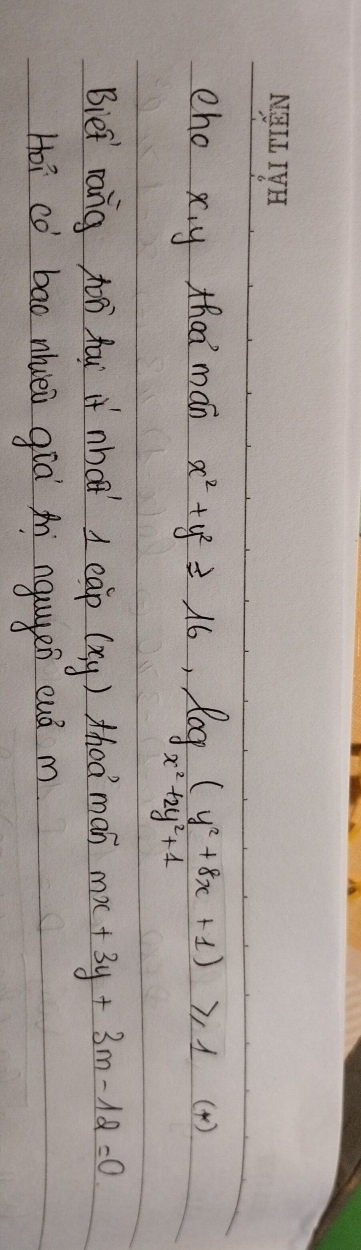 HẢI TIẾN
Cho x,y thoả mãn x² + y² ≥ 16, log_{x²+2y²+1} (y² + 8x + 1) ≥ 1 (*)
Biết rằng tồn tại ít nhất 1 cặp (x,y) thoả mãn mx + 3y + 3m - 12 = 0.
Hỏi có bao nhiêu giá trị nguyên của m